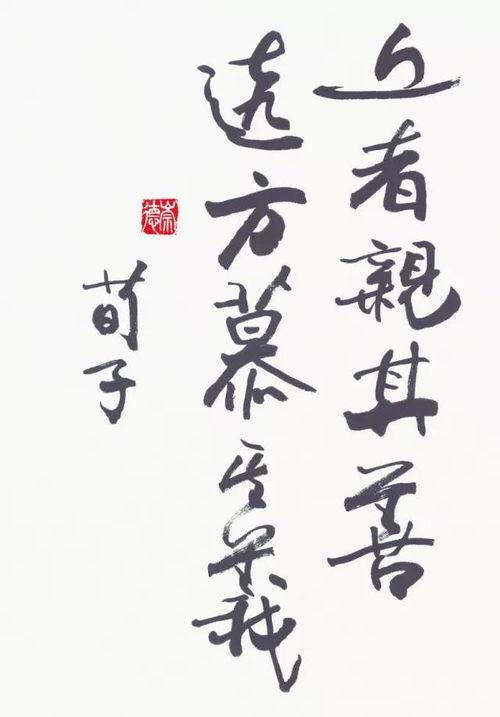 近者親其善
遠方慕其義
荀子
崇德